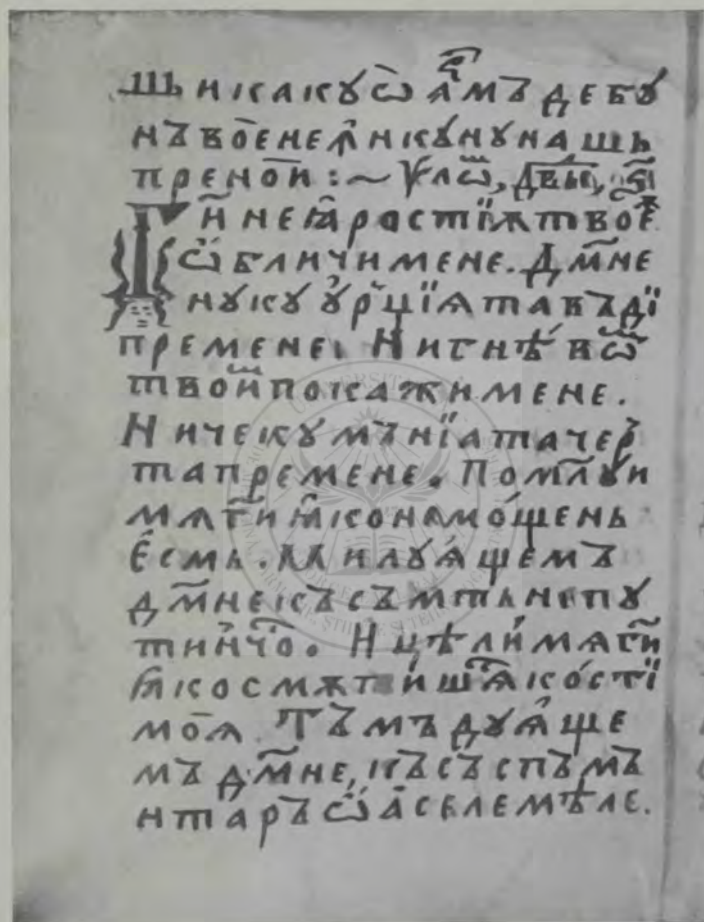 ши какꙋ ѡ҆ а҆рмъ де бꙋ
нъ вое не а҆никꙋнꙋнашь
пре нои :~ Ѱал҃ѡ, дв҃ы, ѕ҃
Ги҃ не ꙗ҆ростїѫ твоеѫ
ѡ҆бличи мене. Дм҃не
нꙋ кꙋ ᲂу҆рцїѧ та въдї
пре мене. Ни гнѣвѡм
твоим покажи мене.
Ниче кꙋ мънїа та чер
та пре мене. Помл҃ꙋи
мѧ ги҃ ꙗ҆ко немо́щень
е҆смь. Милꙋѧ҆щемъ
дм҃не къ сѫмть непꙋ
тинчо. И҆ цѣли҆ мѧ ги҃
ꙗ҆ко смѫт и҆шѧ ко́стї
моѧ. Тъмъдꙋѧ҆ще
мъ дм҃не, къ съ спъмъ
нтаръ ѡ҆аселе мѣле.